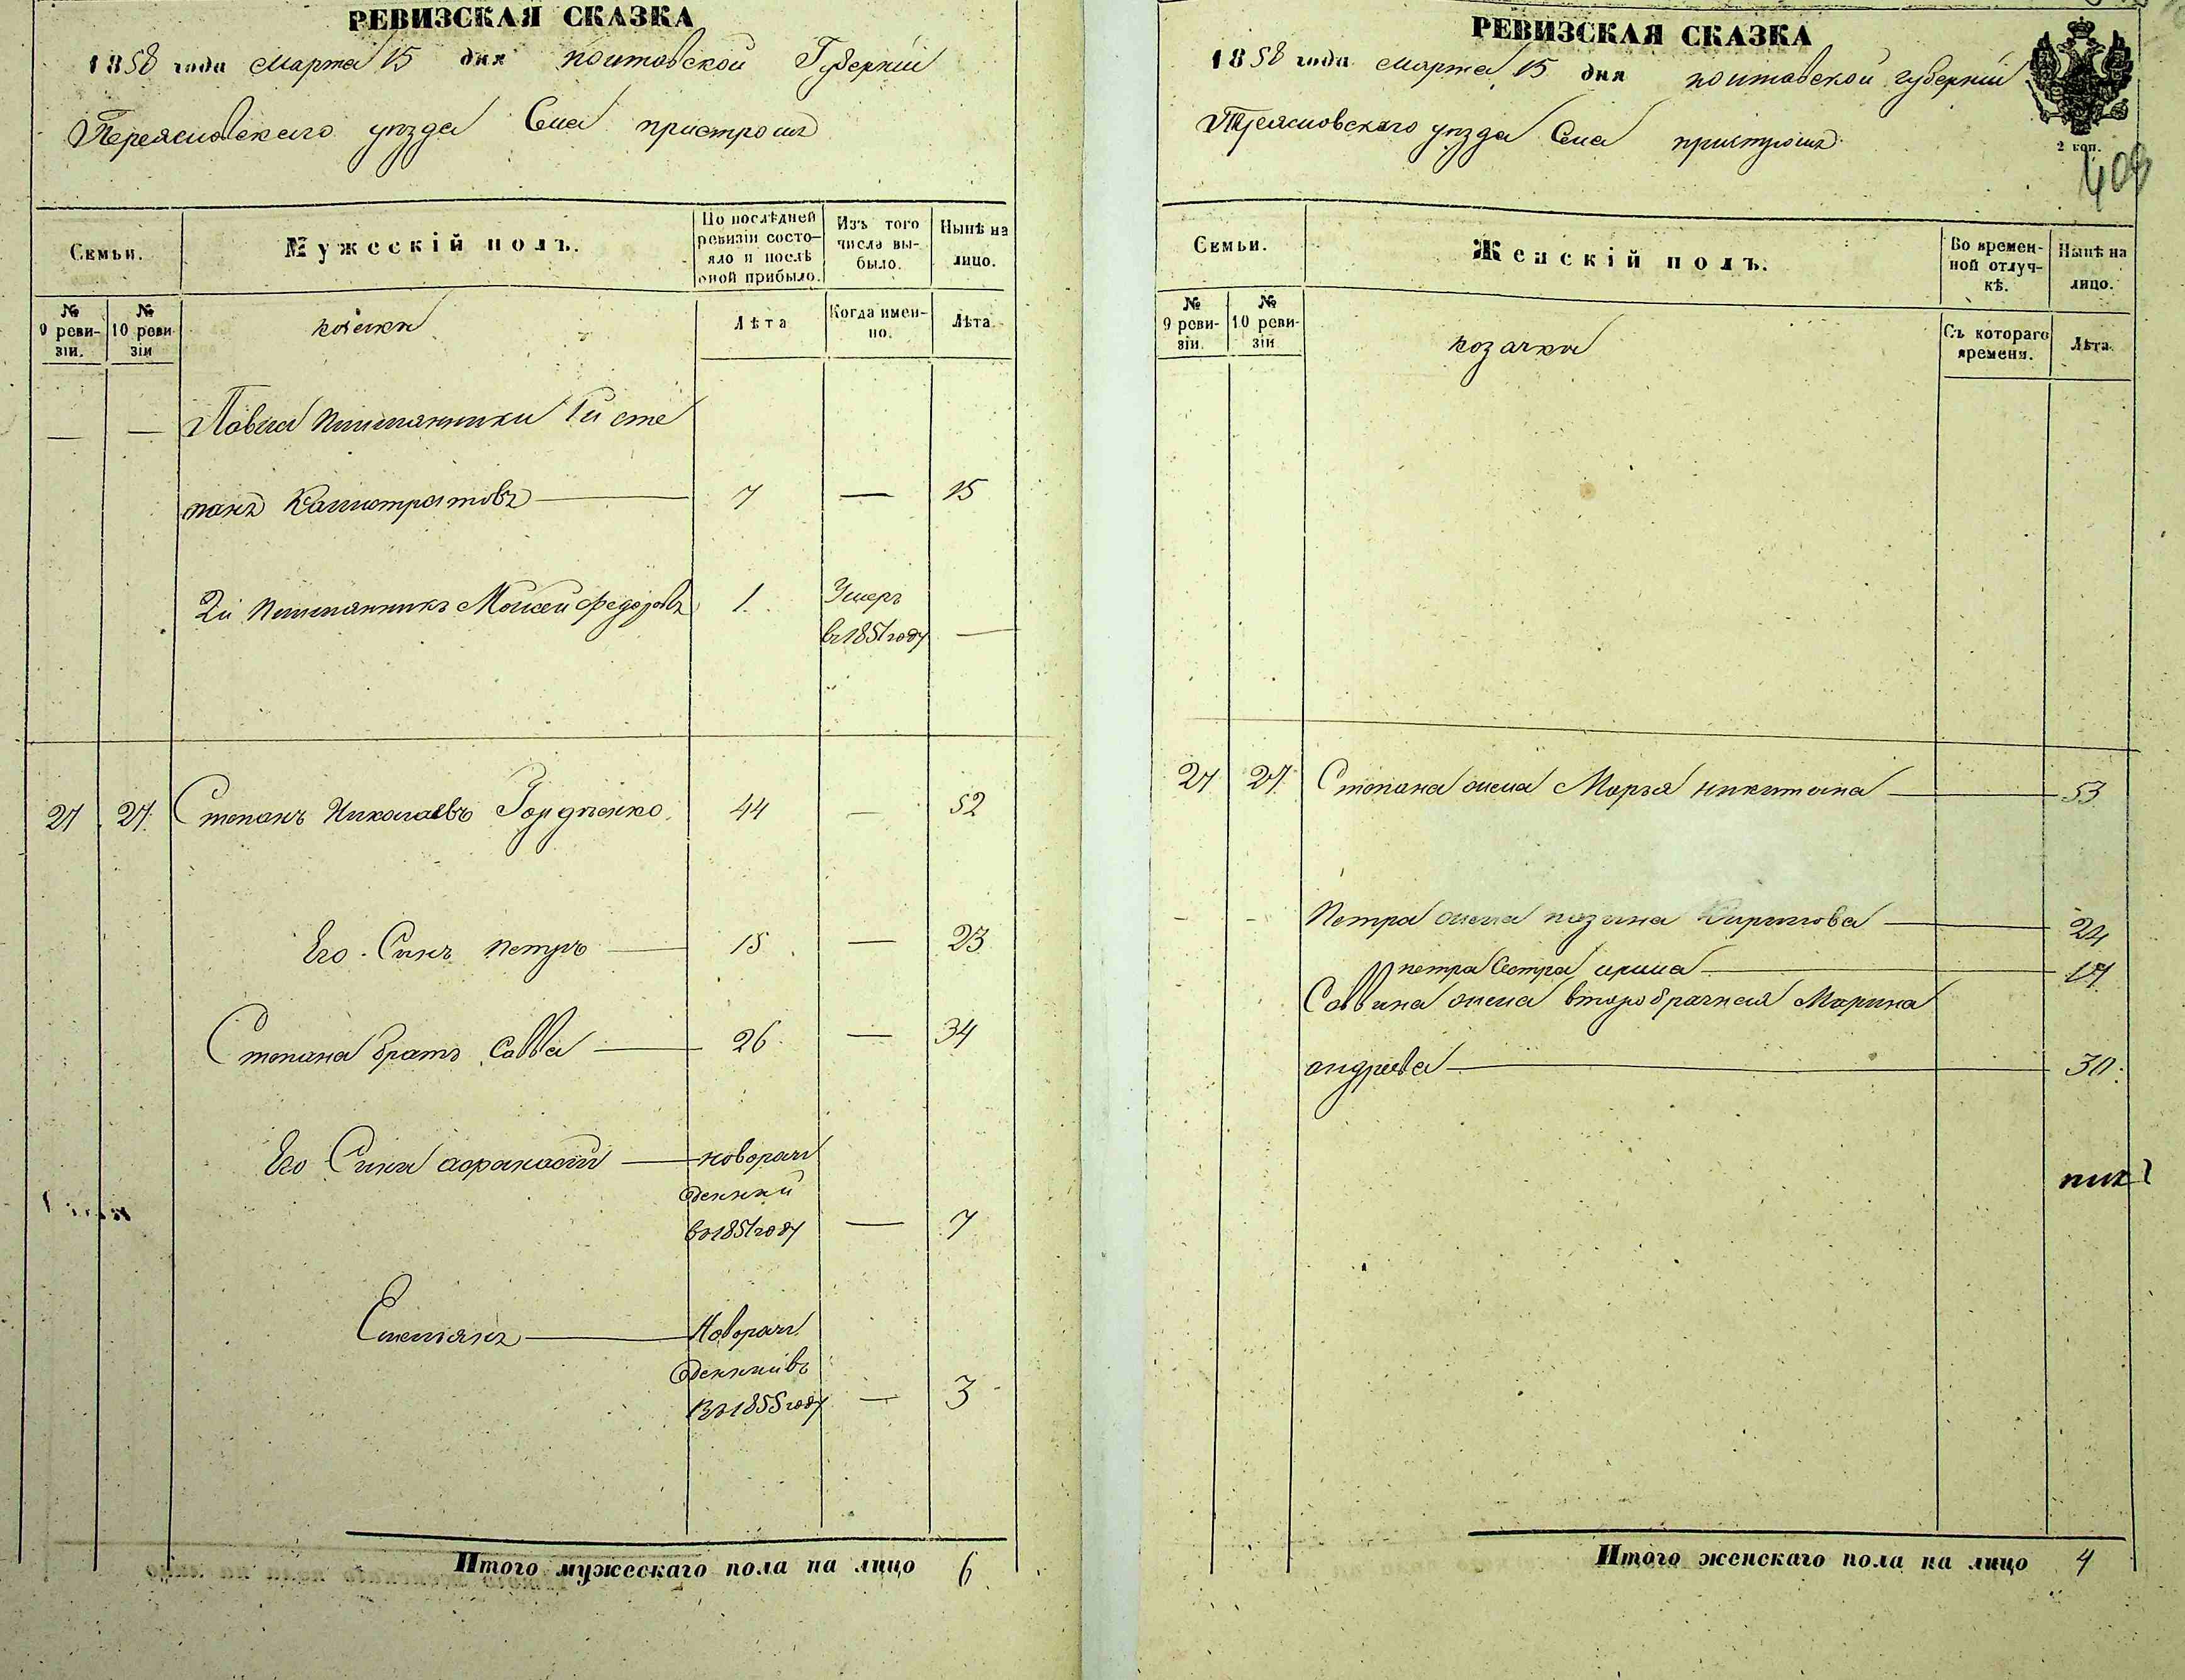 РЕВИЗСКАЯ СКАЗКА
1858 года марта 15 дня полтавской Губерніи
Переяславскаго уѣзда Села пристромъ
Семьи.
Мужескій полъ.
По послѣдней ревизіи состо-
яло и послѣ
оной прибыло.
Изъ того
числа вы-
было.
Нынѣ на
лицо.
№
9 реви-
зіи.
№
10 реви-
зіи
козаки
Лѣта
Когда имен-
но.
Лѣта.
— — Павла племянники 1й сте
панъ Калистратовъ — 7 — 15
2й племянникъ Мойсей федоровъ 1. Умеръ
въ 1851 году —
27 27. Степанъ Николаевъ Гордіенко 44 — 52
Его Сынъ петръ — 15 — 23
Степана братъ савва — 26 — 34
Его Сыны афанасий — новорож
денный
въ 1851 году — 7
Емельянъ — Новорож
денный въ
въ 1855 году — 3
Итого мужескаго пола на лицо 6
РЕВИЗСКАЯ СКАЗКА
1858 года марта 15 дня полтавской губерніи
Переясловскаго уѣзда Села пристромъ
2 коп.
408
Семьи.
Женскій полъ.
Во времен-
ной отлуч-
кѣ.
Нынѣ на
лицо.
№
9 реви-
зіи.
№
10 реви-
зіи
козачки
Съ котораго
времени.
Лѣта.
27 27. Степана жена Марья никитина — 53
Петра жена Кирилова — 24
петра Сестра — 17
Саввина жена второбрачная Марина
андреева — 30.
Итого женскаго пола на лицо 4